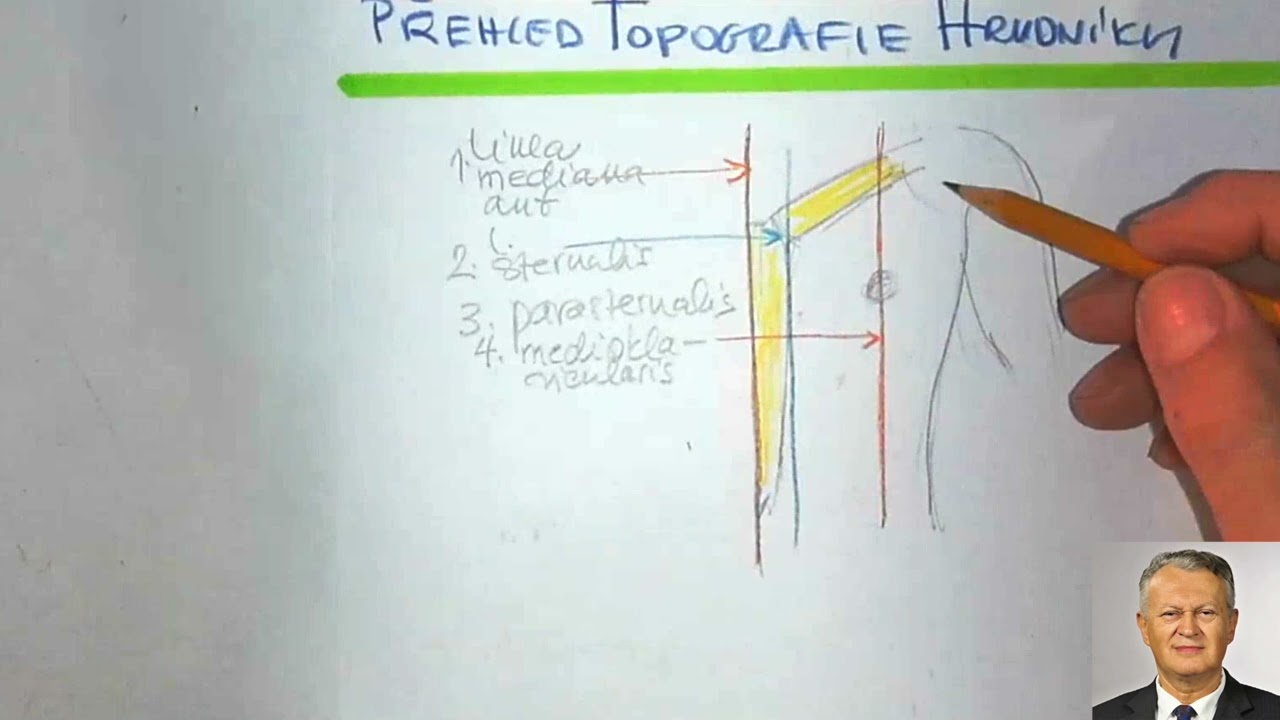 PŘEHLED TOPOGRAFIE HRUDNÍKU
1. Linea
mediana
ant
l.
2. sternalis
3. parasternalis
4. mediokla-
vicularis